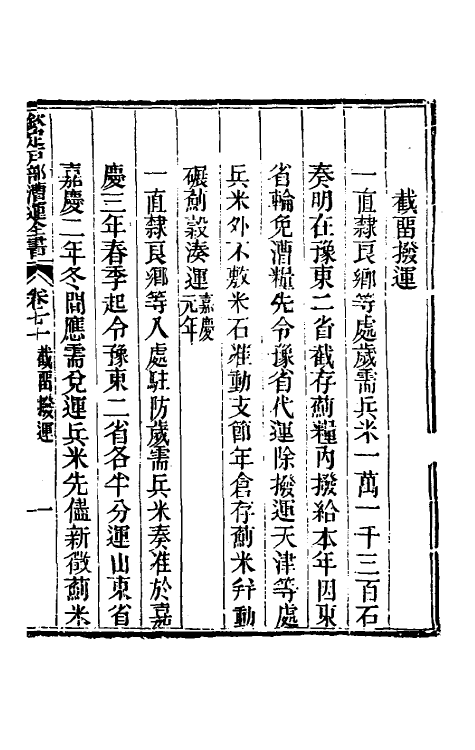 截畱撥運
一直隸良鄉等處歲需兵米一萬一千三百石
奏明在豫東二省截存薊糧內撥給本年因東
省輪免漕糧先令豫省代運除撥運天津等處
兵米外不敷米石准動支節年倉存薊米幷動
碾薊穀湊運嘉慶元年
一直隸良鄉等入處駐防歲需兵米奏准於嘉
慶三年春季起令豫東二省各半分運山東省
嘉慶二年冬間應需兌運兵米先儘新徵薊米
欽定戶部漕運全書 卷七十 截畱撥運 一